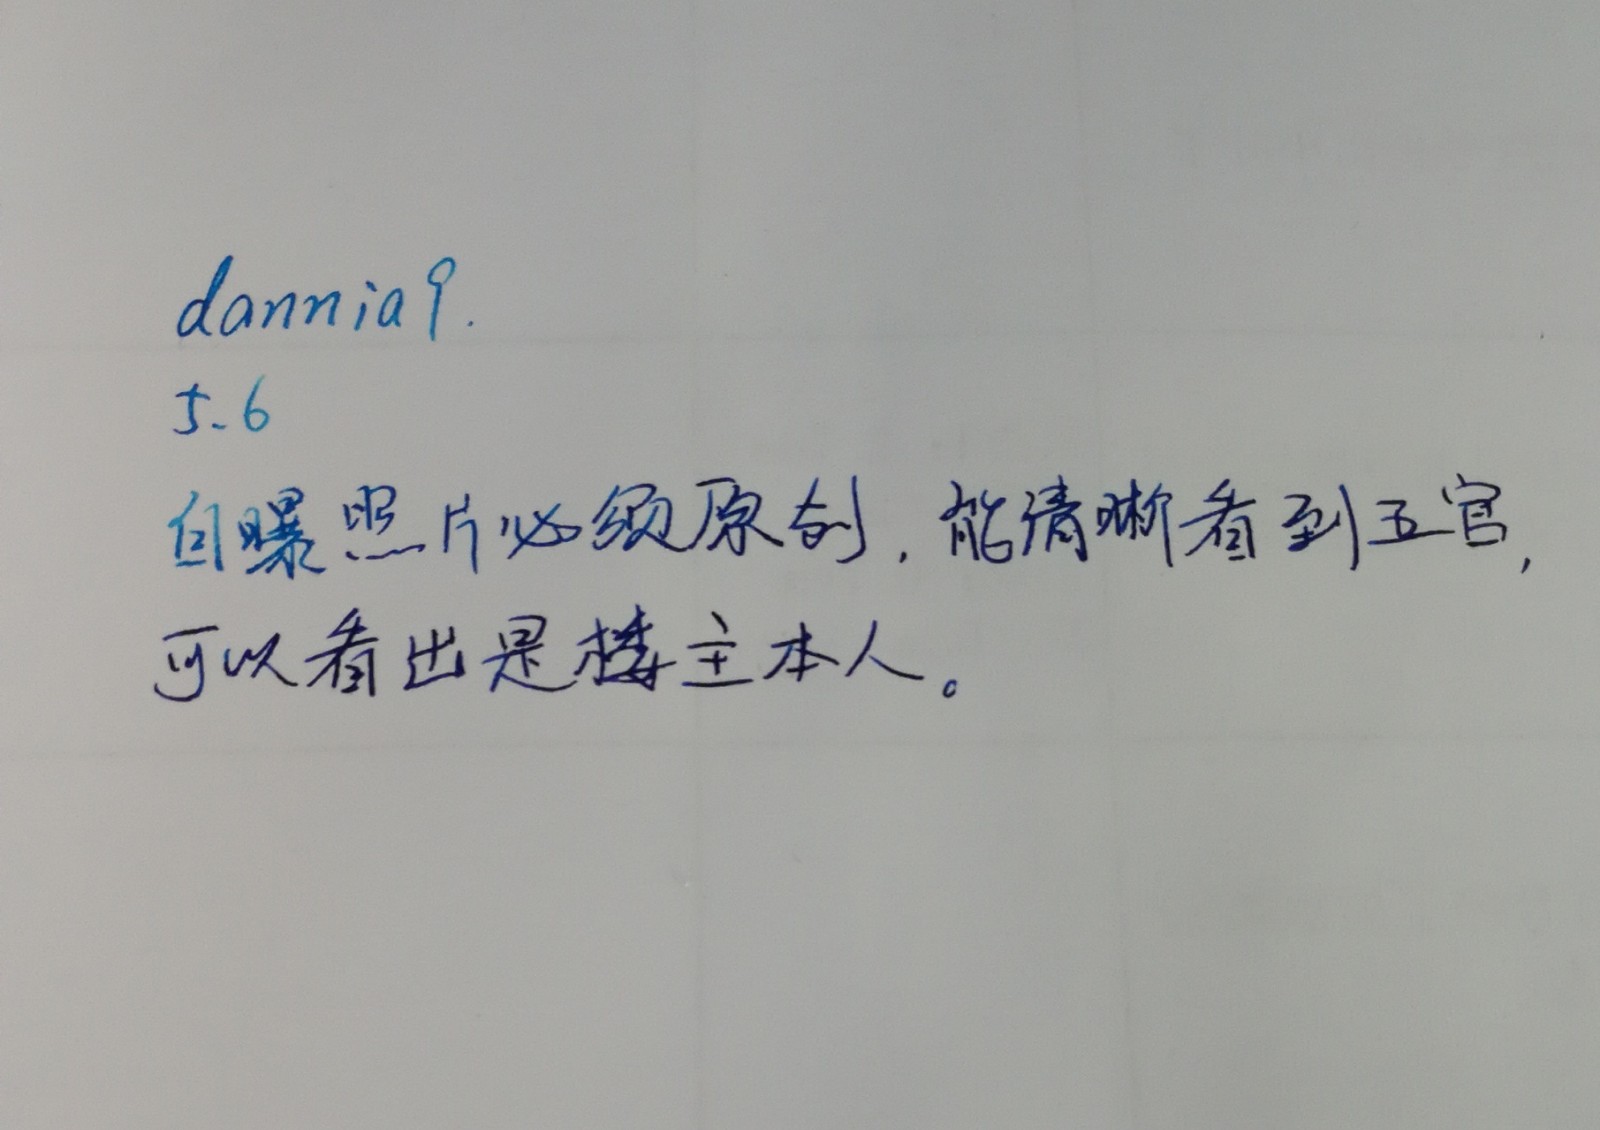 dannia9.
5.6
自曝照片必须原创，能清晰看到五官，
可以看出是楼主本人。